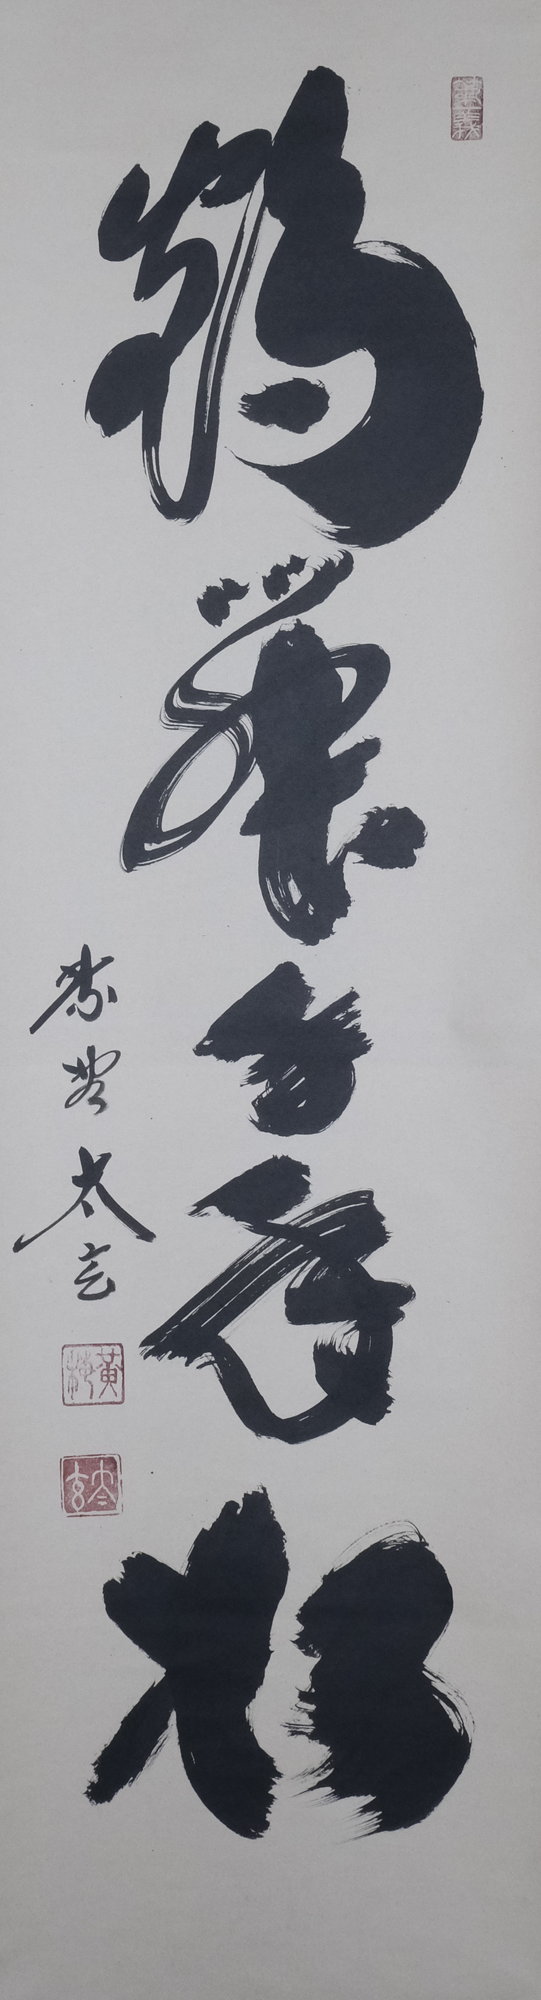 鶴舞千年松
紫野太玄
黄梅
太玄